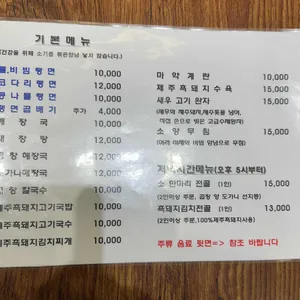 기본메뉴
건강을 위해 소기름 볶은양념 넣지 않습니다.)
물,비빔밀면 10,000
코다리밀면 12,000
콩나물밀면 10,000
밀면곱배기 추가 4,000
해장국 10,000
10,000
해장국 12,000
가니해장국 12,000
칼국수 10,000
제주흑돼지고기국밥 10,000
제주흑돼지고기국수 10,000
제주흑돼지김치찌개 10,000
마약계란 10,000
제주흑돼지수육 15,000
새우 고기 완자 15,000
(새우와 제주돼지, 제주톳을 넣어,
직접 손으로 빚은 고급수제완자)
소양무침 15,000
(어리 야채와 비빔 양념으로 무침)
저녁시간메뉴(오후 5시부터)
소 한마리 전골 (1인) 15,000
(2인이상 주문, 곱창 양 도가니 선지등)
흑돼지김치전골 (1인) 13,000
(2인이상 주문,100%제주흑돼지사용)
주류 음료 뒷면=> 참조 바랍니다